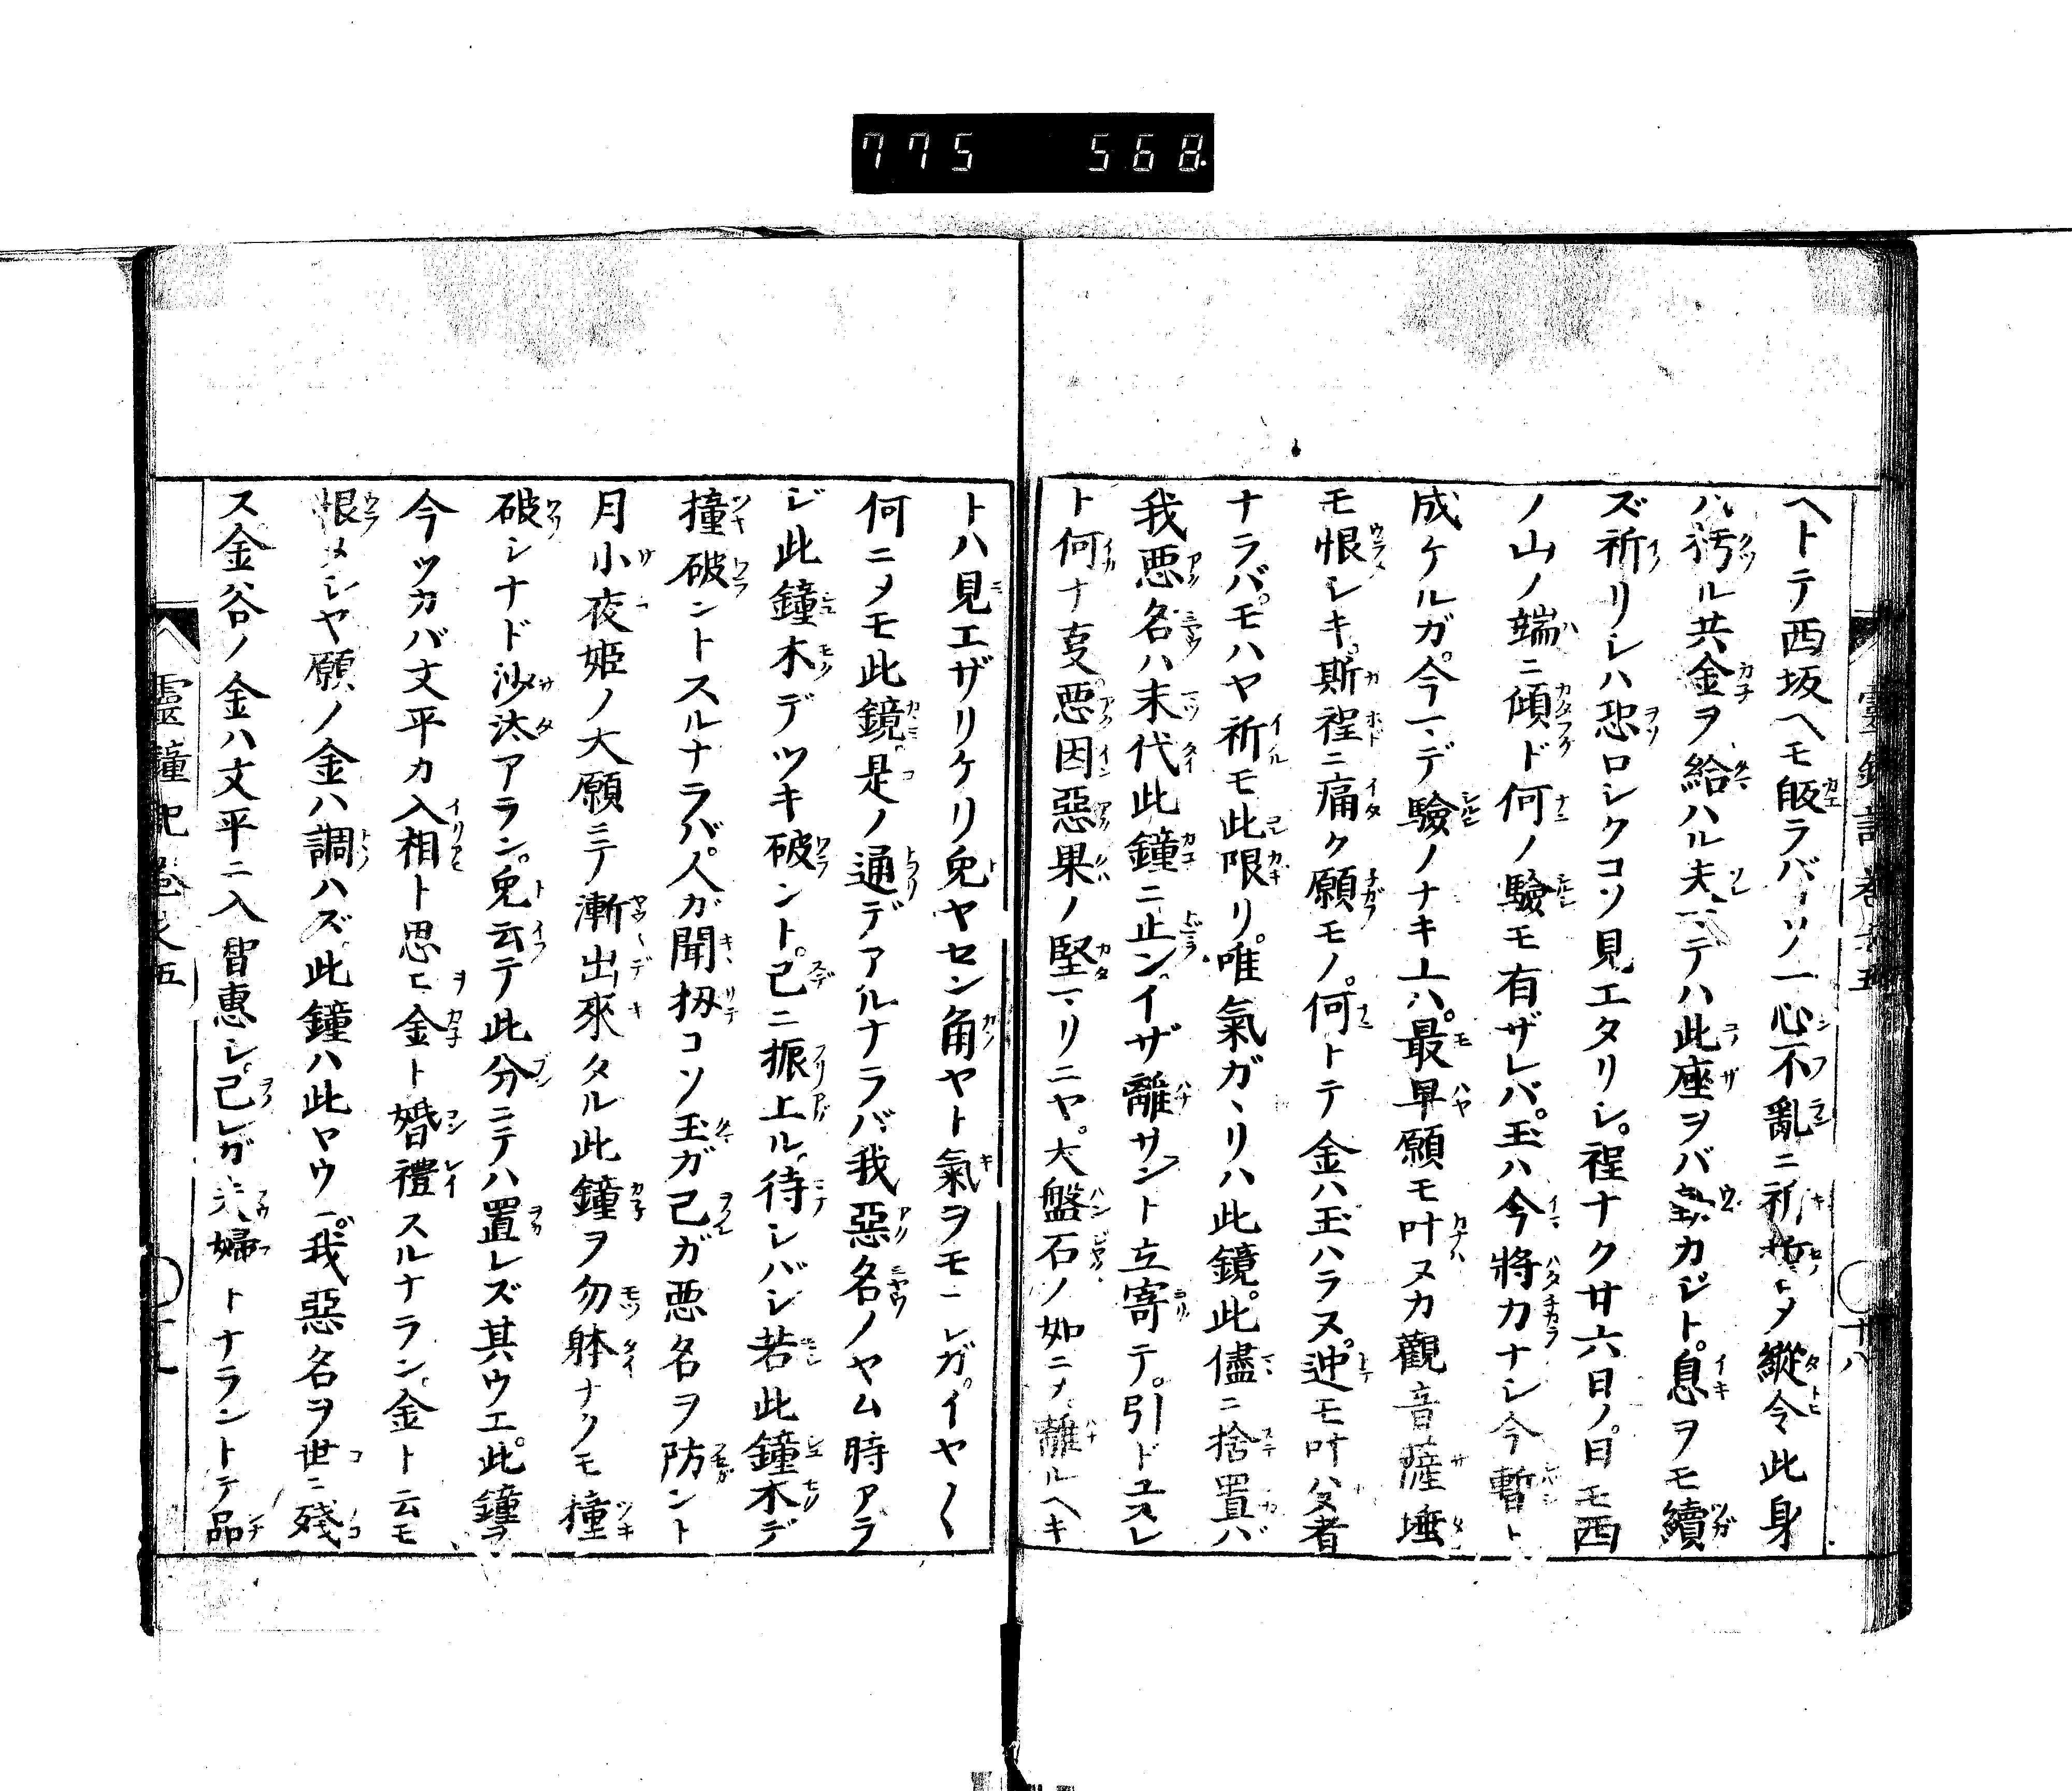 775 568
靈鐘記卷五 十八
ヘトテ西坂ヘモ皈ラバコソ一心不亂ニ祈念メ縱令此身
ハ汚ル共金ヲ給ハル夫マデハ此座ヲバ動カジト息ヲモ續
ズ祈リシハ恐ロシクコソ見エタリシ。程ナク廿六日ノ日モ西
ノ山ノ端ニ傾ド何ノ驗モ有ザレバ。玉ハ今將カナシ今暫ト
成ケルガ。今マデ驗ノナキ上ハ。最早願モ叶ヌカ觀音薩埵
モ恨シキ。斯程ニ痛ク願モノ。何トテ金ハ玉ハラヌ。迚モ叶ハヌ者
ナラバ。モハヤ祈モ此限リ。唯氣ガヽリハ此鏡。此儘ニ捨置バ
我悪名ハ末代此鐘ニ止ン。イザ離サント立寄テ。引ドユスレ
ト何ナ㕝。惡因惡果ノ堅マリニヤ。大盤石ノ如ニメ。離ルヘキ
トハ見エザリケリ兔ヤセン角ヤト氣ヲモミシガ。イヤ〱
何ニメモ此鏡。是ノ通デアルナラバ我惡名ノヤム時アラ
ジ此鐘木デツキ破ント。已ニ振上ル。待シバシ若此鐘木デ
撞破ントスルナラバ。人ガ聞扨コソ玉ガ己ガ悪名ヲ防ント
月小夜姫ノ大願ニテ漸出來タル此鐘ヲ勿躰ナクモ撞
破シナド沙汰アラン。兔云テ此分ニテハ置レズ其ウエ。此鐘ヲ
今ツカバ文平カ入相ト思ヒ金ト婚禮スルナラン。金ト云モ
恨メシヤ願ノ金ハ調ハズ。此鐘ハ此ヤウニ。我惡名ヲ世ニ殘
ス金谷ノ金ハ文平ニ入智惠シ。己レガ夫婦トナラントテ品
靈鐘記卷之五